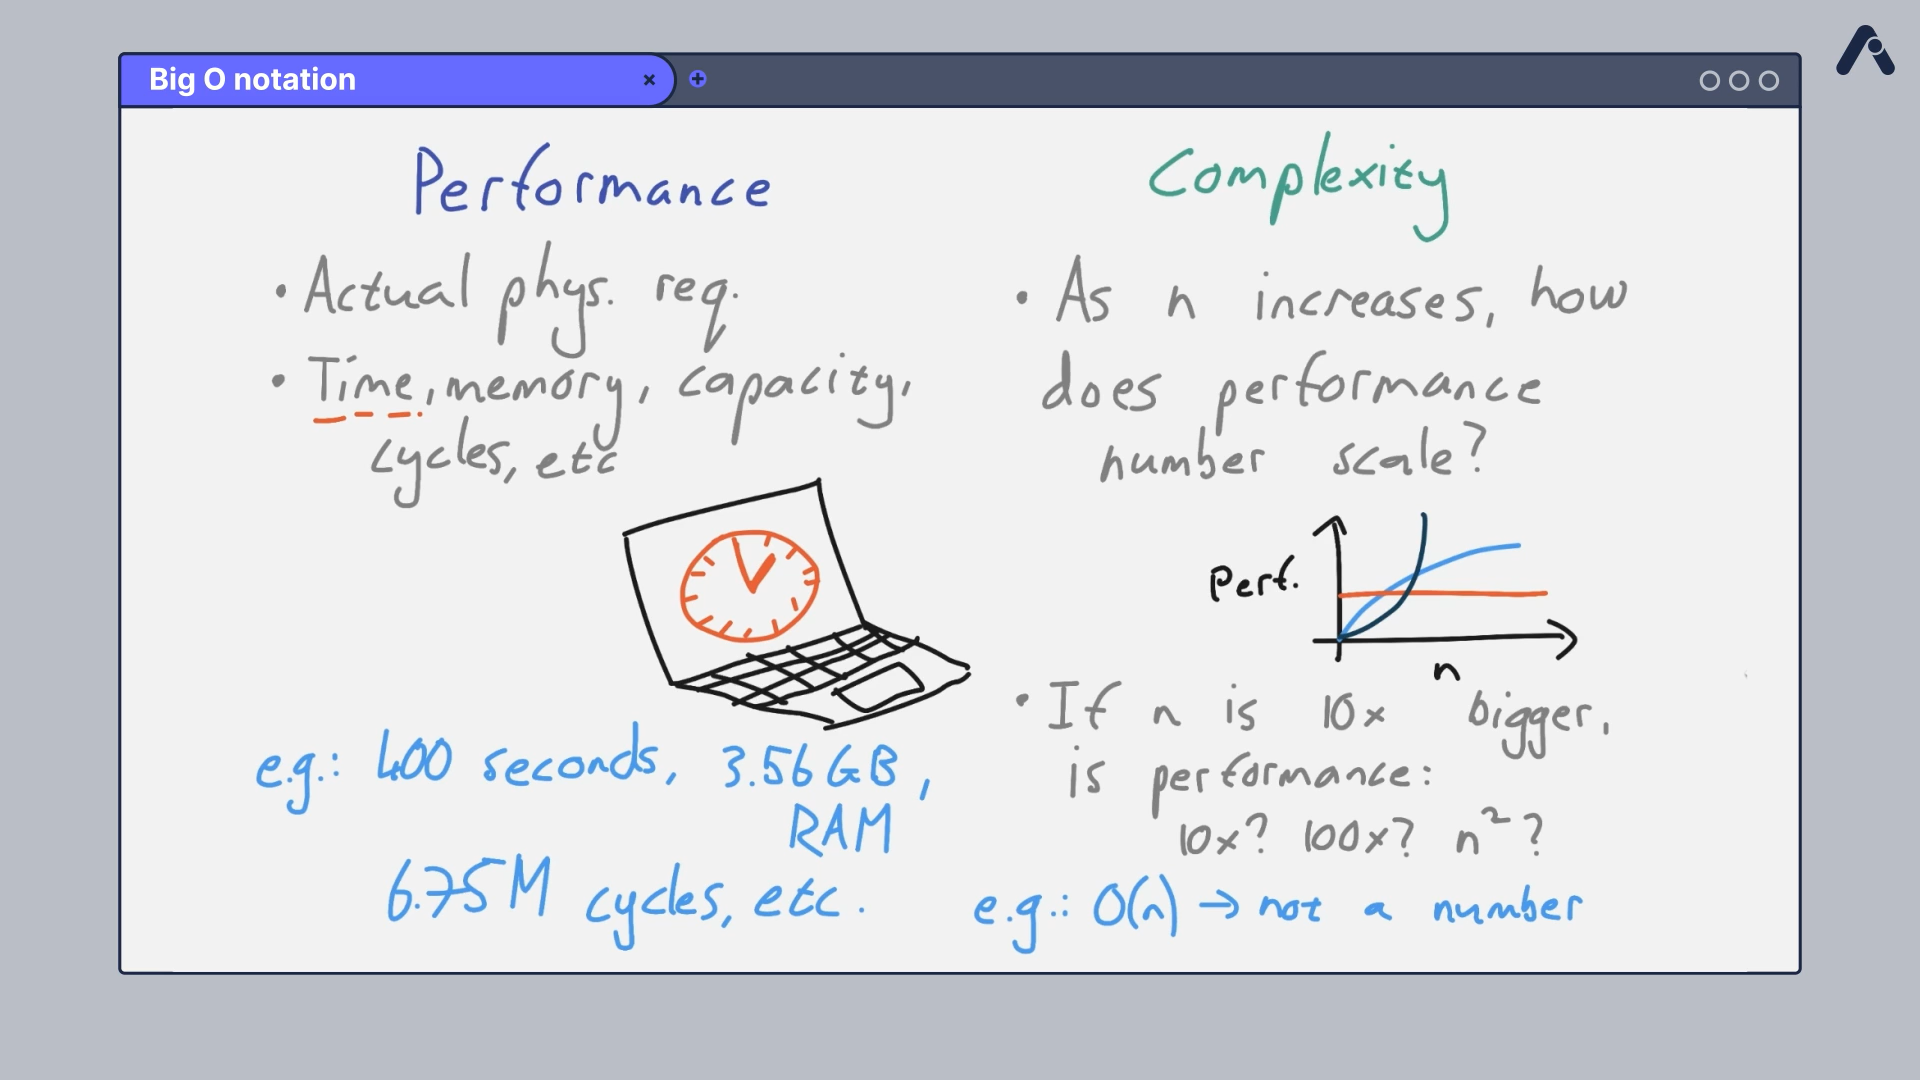 Big O notation
Performance
• Actual phys. req.
• Time, memory, capacity,
cycles, etc
e.g.: 400 seconds, 3.56 GB,
RAM
6.75M cycles, etc.
Complexity
• As n increases, how
does performance
number scale?
Perf.
n
• If n is 10x bigger,
is performance:
10x? 100x? n²?
e.g.: O(n) → not a number